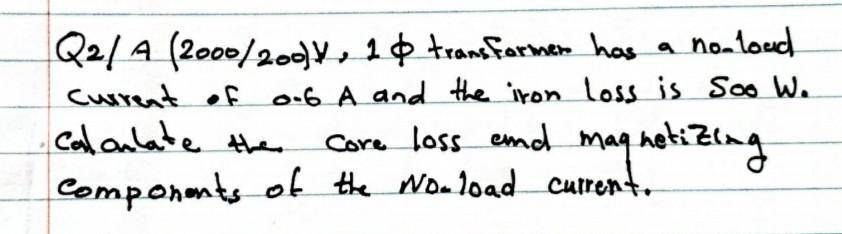 Q2/ A (2000/200)V, 1 ϕ transformer has a no-load
current of 0.6 A and the iron loss is 500 W.
Calculate the core loss and magnetizing
components of the No-load current.